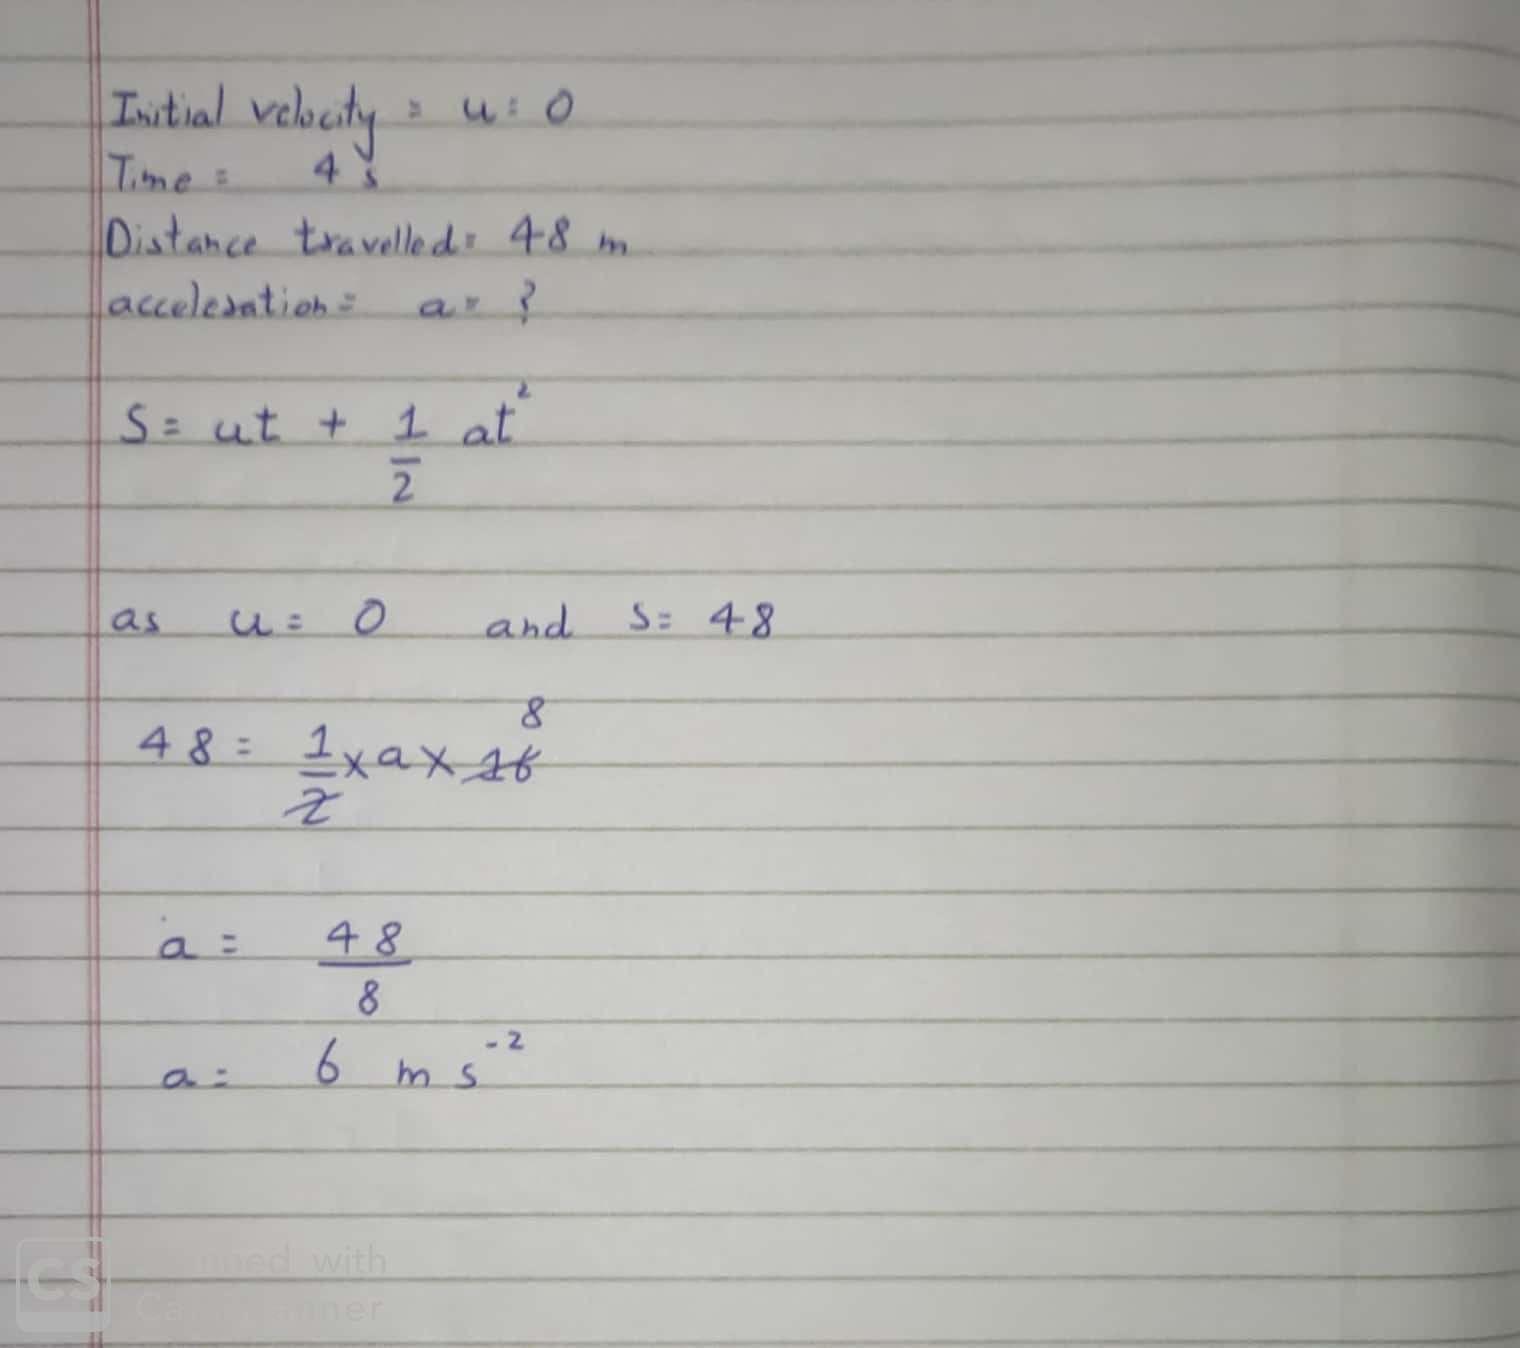 Initial velocity = u = 0
Time = 4 s
Distance travelled = 48 m
acceleration = a = ?
S = ut + 1/2 at²
as u = 0 and S = 48
8
48 = 1/2 x a x 16
a = 48/8
a = 6 m s⁻²
CS
with